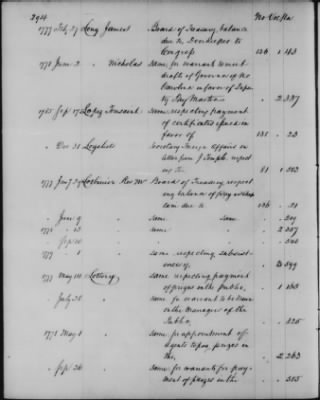 294 No Vol Pa
1777 Feb 27 Long James Board of Treasury, balance
due to Doorkeeper to
Congress 136 1 43
1778 June 2 " Nicholas Same for warrant to meet
draft of Governor of No
Carolina in favor of
Pay Master " 2 337
1785 Sep 17 Lopez same, respecting payment
of certificates
favor of 138 " 23
" Dec 31 Secretary Foreign Affairs on
letter from J Temple, respect
ing 81 1 383
1777 Jany 29 Rev Mr Board of Treasury respect
ing balance of pay as Chap
lain due to 136 " 21
" June 9 " same same " " 209
1778 " 13 " same " 2 357
" Sep 10 " " 546
1779 " 1 " same respecting subsist-
ence of, " 3 599
1777 May 10 Lottery same respecting payment
of prizes in the Public, " 1 163
" July 26 " same for warrant to be drawn
in the Manager of the
Public, " " 325
1778 May 1 " same for appointment of
Agents to pay prizes in
the, " 2 263
" Sep 26 " same for warrants for pay-
ment of prizes in the " " 585